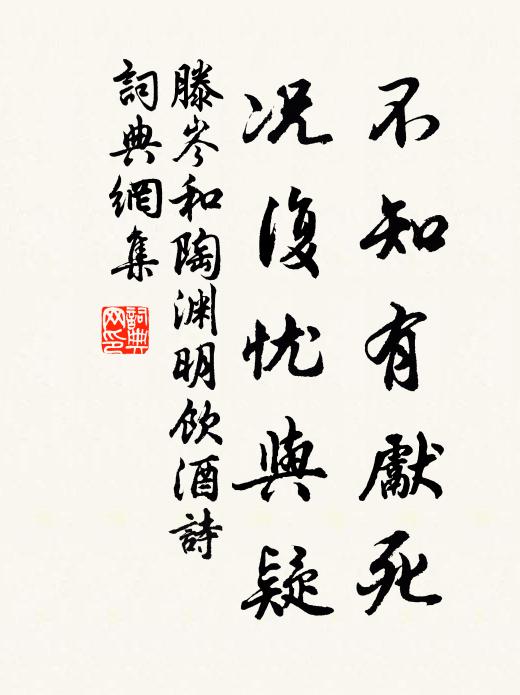 不知有獻死
况復忧與疑
滕岑和陶渊明飲酒詩
詞典網集
詞典网印